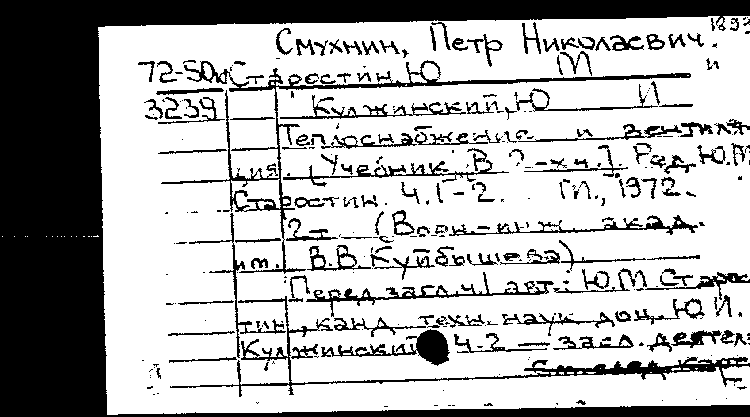 Смухнин, Петр Николаевич. 1893
72-50к Старостин, Ю М и
3239 Кулжинский, Ю И
Теплоснабжение и вентиля-
ция. [Учебник. В 2-х ч.]. Ред. Ю.М.
Старостин. Ч. 1-2. 1972.
2 т. (Воен.-инж. акад.
им. В.В. Куйбышева).
Перед загл. ч. 1 авт.: Ю.М Старос
тин, канд техн. наук доц. Ю.И.
Кулжинский Ч-2 — засл. деятел
См. след. карт